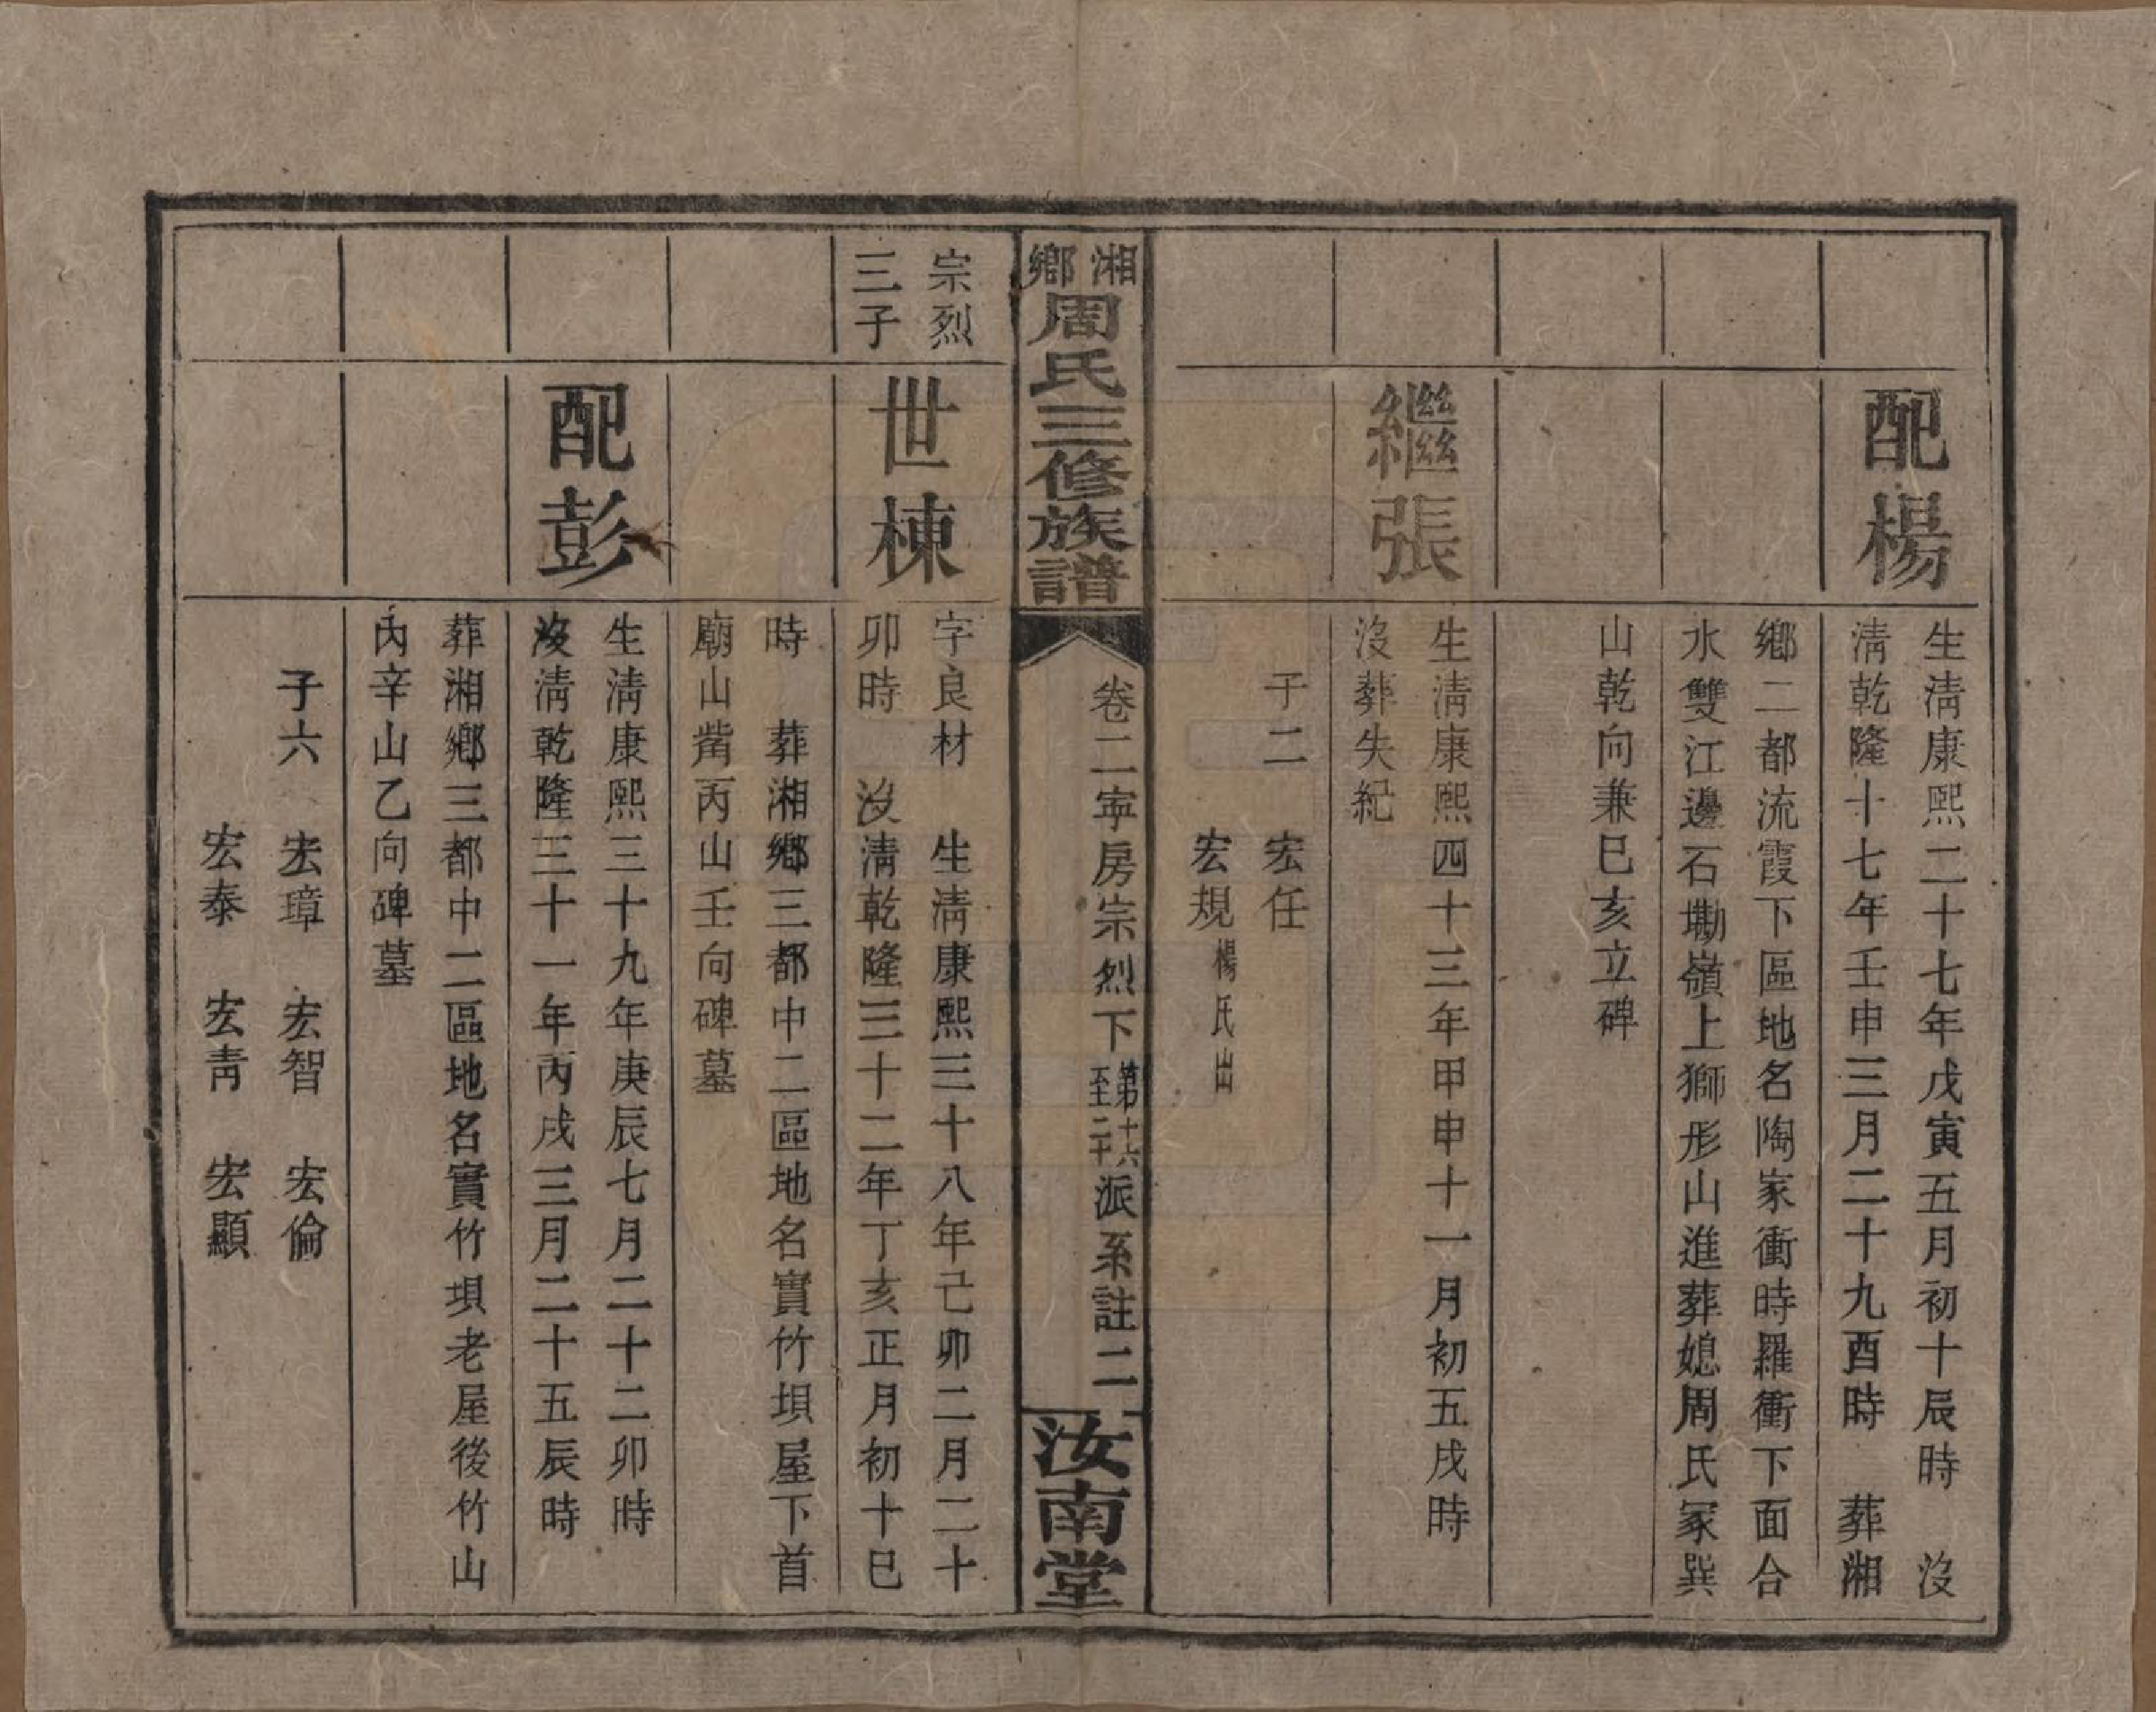 配楊
生清康熙二十七年戊寅五月初十辰時　沒
清乾隆十七年壬申三月二十九酉時　葬湘
鄉二都流霞下區地名陶家衝時羅衝下面合
水雙江邊石墈嶺上獅形山進葬媳周氏冢巽
山乾向兼巳亥立碑
繼張
生清康熙四十三年甲申十一月初五戌時
沒葬失紀
子二　宏任
宏規楊氏出
湘鄉周氏三修族譜
卷二寧房宗烈下第十六至二十派系註二
汝南堂
宗烈
三子
世棟
字良材　生清康熙三十八年己卯二月二十
卯時　沒清乾隆三十二年丁亥正月初十巳
時　葬湘鄉三都中二區地名實竹垻屋下首
廟山嵩丙山壬向碑墓
配彭
生清康熙三十九年庚辰七月二十二卯時
沒清乾隆三十一年丙戌三月二十五辰時
葬湘鄉三都中二區地名實竹垻老屋後竹山
內辛山乙向碑墓
子六　宏璋　宏智　宏倫
宏泰　宏青　宏顯